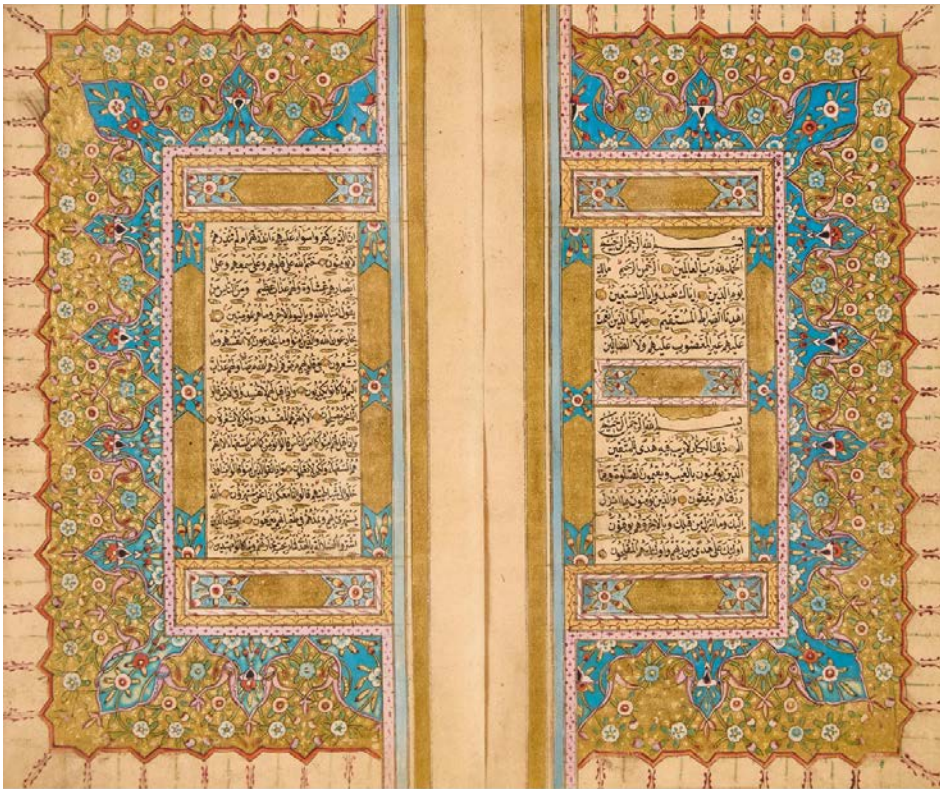 بسم الله الرحمن الرحيم
الحمد لله رب العالمين الرحمن الرحيم مالك
يوم الدين اياك نعبد واياك نستعين
اهدنا الصراط المستقيم صراط الذين انعمت
عليهم غير المغضوب عليهم ولا الضالين
بسم الله الرحمن الرحيم
الم ذلك الكتاب لا ريب فيه هدى للمتقين
الذين يؤمنون بالغيب ويقيمون الصلوة ومما
رزقناهم ينفقون والذين يؤمنون بما انزل
اليك وما انزل من قبلك وبالاخرة هم يوقنون
اولئك على هدى من ربهم واولئك هم المفلحون
ان الذين كفروا سواء عليهم ءانذرتهم ام لم تنذرهم
لا يؤمنون ختم الله على قلوبهم وعلى سمعهم وعلى
ابصارهم غشاوة ولهم عذاب عظيم ومن الناس من
يقول امنا بالله وباليوم الاخر وما هم بمؤمنين
يخادعون الله والذين امنوا وما يخدعون الا انفسهم وما
يشعرون في قلوبهم مرض فزادهم الله مرضا ولهم عذاب
اليم بما كانوا يكذبون واذا قيل لهم لا تفسدوا في الارض قالوا
انما نحن مصلحون الا انهم هم المفسدون ولكن لا يشعرون
واذا قيل لهم امنوا كما امن الناس قالوا انؤمن كما امن السفهاء الا انهم
هم السفهاء ولكن لا يعلمون واذا لقوا الذين امنوا قالوا امنا واذا
خلوا الى شياطينهم قالوا انا معكم انما نحن مستهزؤن الله
يستهزئ بهم ويمدهم في طغيانهم يعمهون اولئك الذين
اشتروا الضلالة بالهدى فما ربحت تجارتهم وما كانوا مهتدين